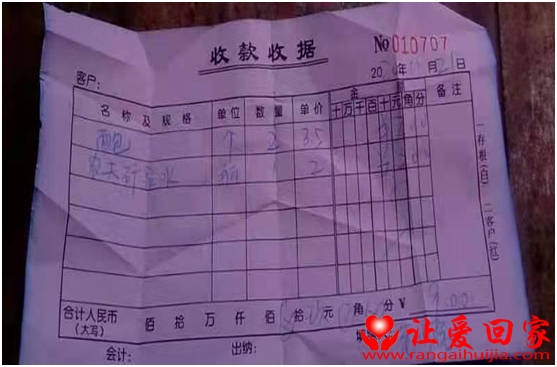 收款收据
No 010707
20 年11月21日
客户:
名称及规格 单位 数量 单价 金 十万千百十元角分 备注
面包 个 2 3.5
农夫矿泉水 瓶 1 2
合计人民币(大写) 佰 拾 万 仟 佰 拾 元 角 分 ¥ 9.00
会计: 出纳:
一存根(白) 二客户(红)
让爱回家
www.rangaihuijia.com